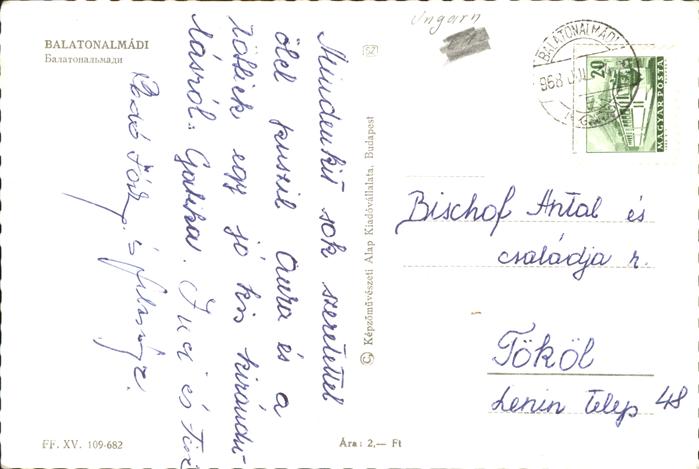 BALATONALMÁDI
Балатональмади
Ungarn
Mindenkit sok szeretettel
ölel Aura és a
többiek egy jó kis kirándu-
lásról. Gabika. Juci és
Radó és
BALATONALMÁDI
968
20
MAGYAR POSTA
Bischof Antal és
családja r.
Tököl
Lenin Telep 48
© Képzőművészeti Alap Kiadóvállalata, Budapest
FF. XV. 109-682
Ára: 2,— Ft